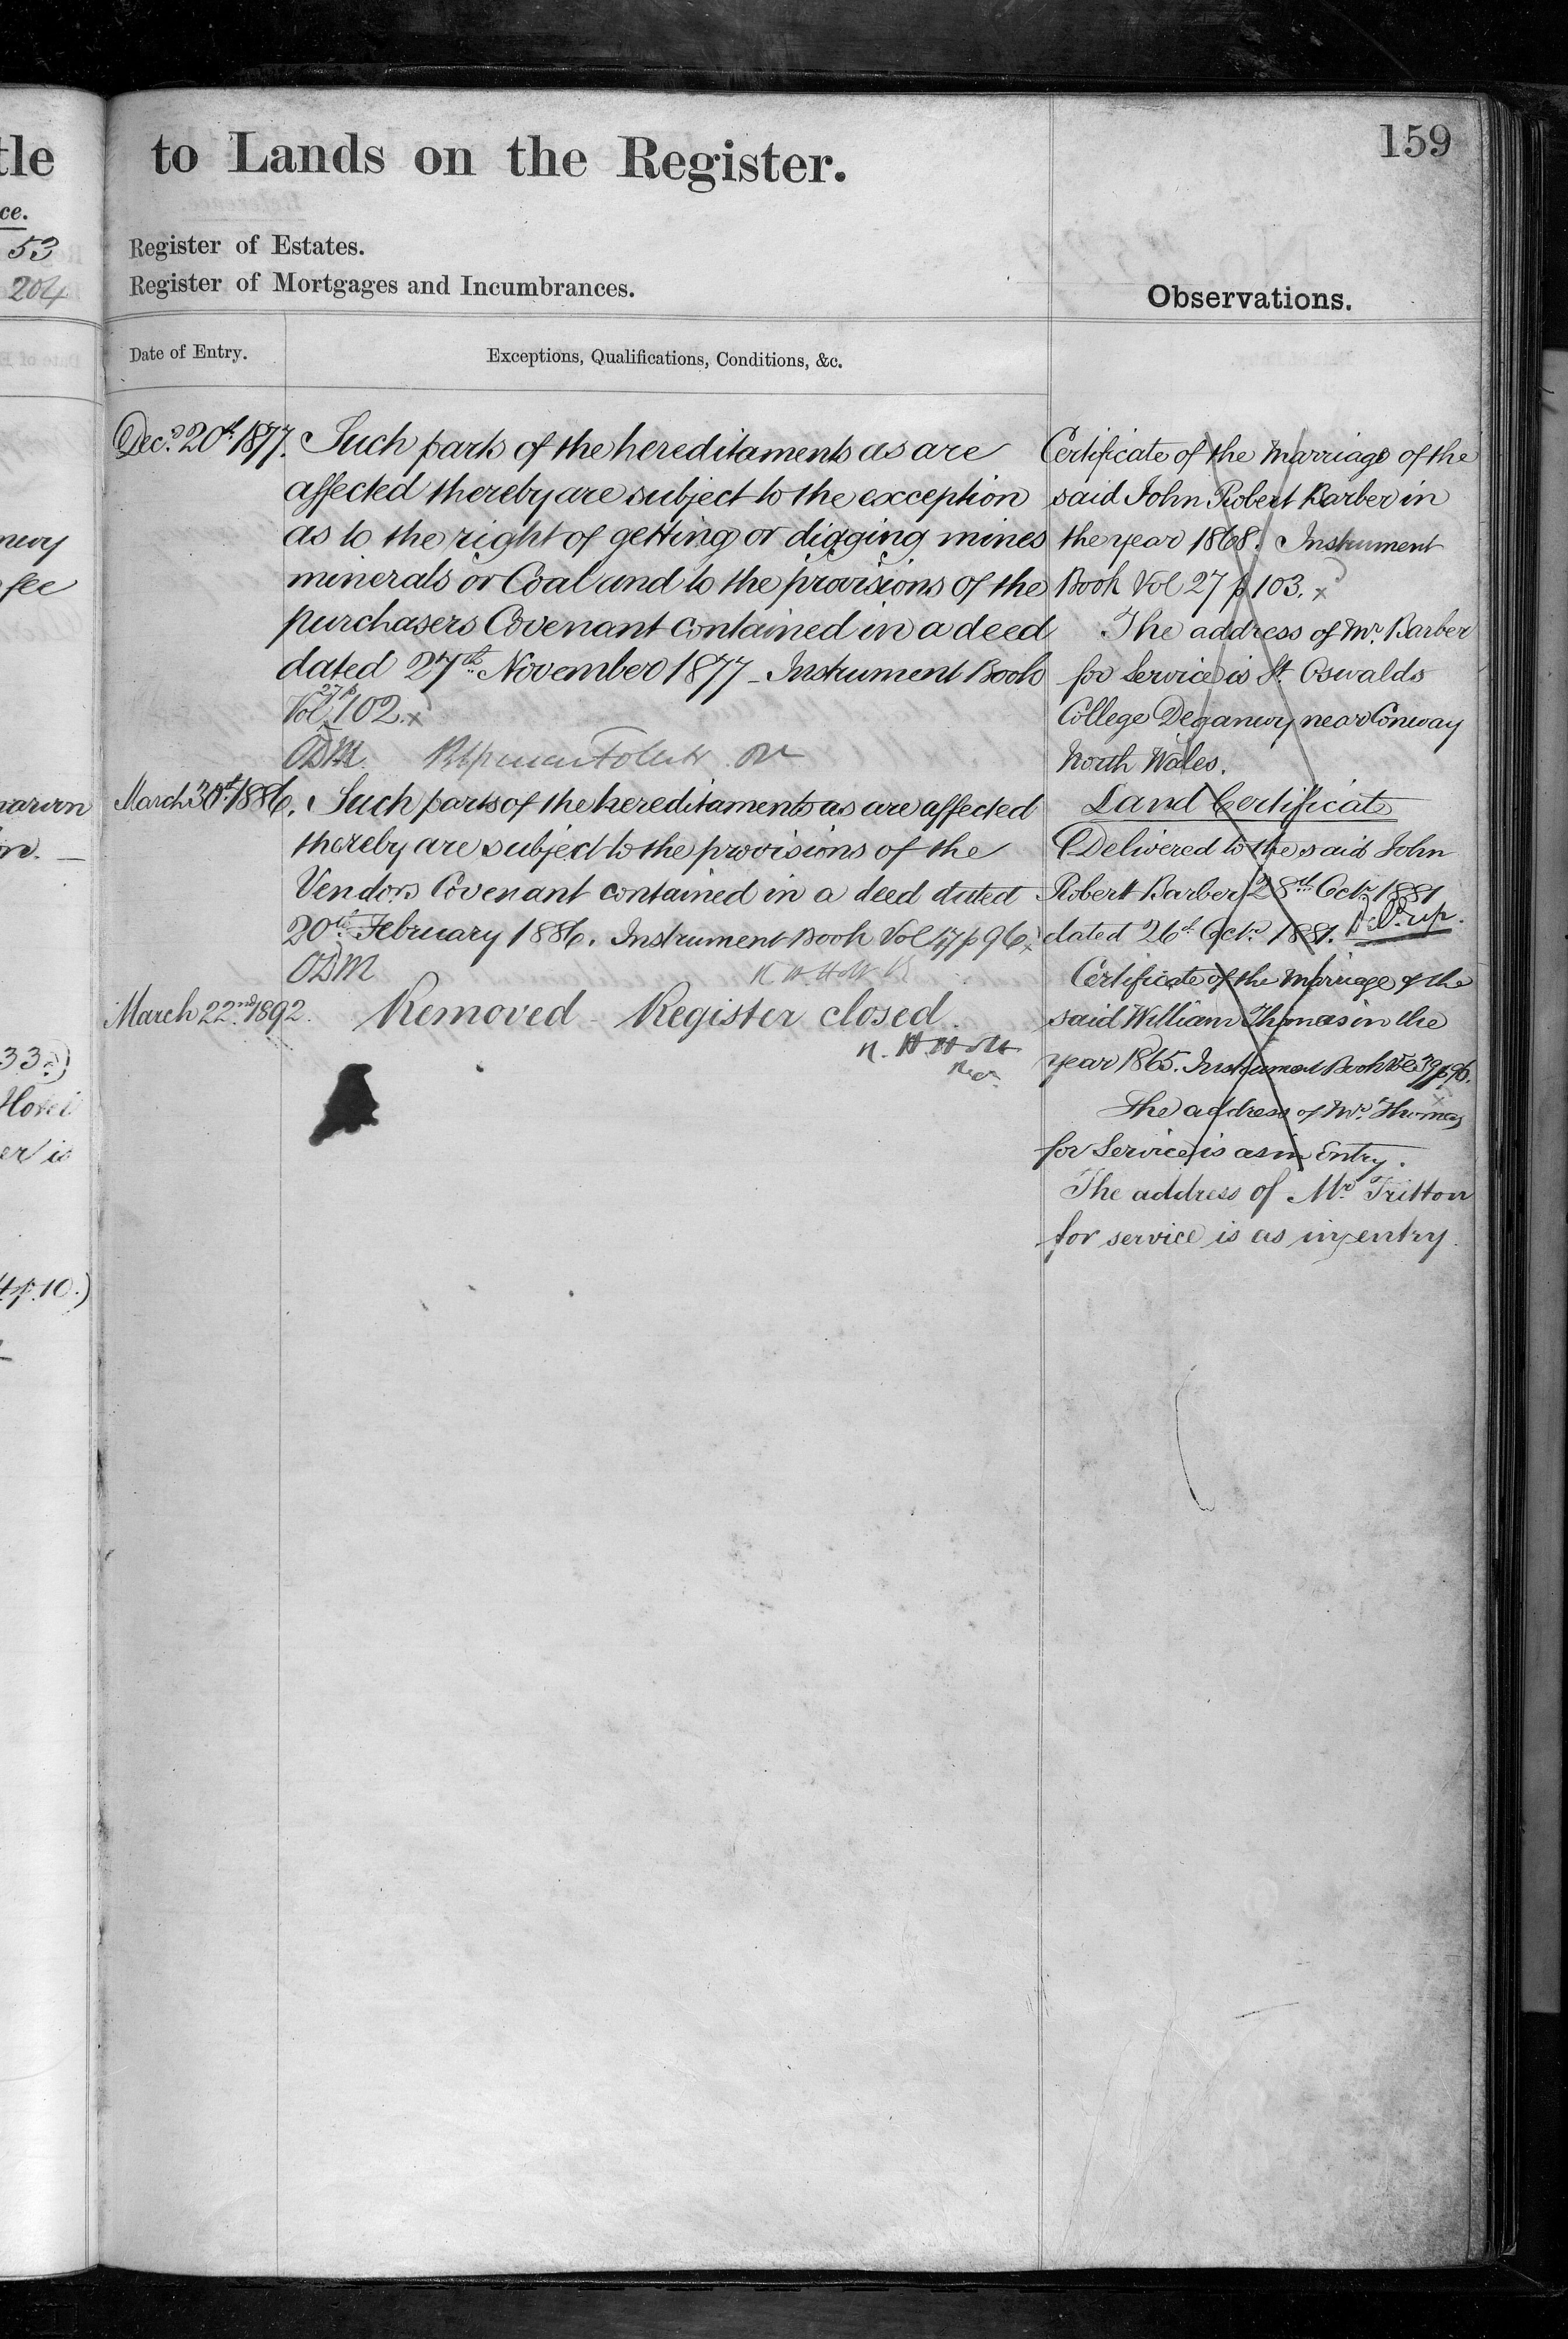 tle
ce.
53
204
fee
Hotel
er is
4 p. 10.)
to Lands on the Register.
159
Register of Estates.
Register of Mortgages and Incumbrances.
Observations.
Date of Entry.
Exceptions, Qualifications, Conditions, &c.
Decr. 20th 1877. Such parts of the hereditaments as are
affected thereby are subject to the exception
as to the right of getting or digging mines
minerals or Coal and to the provisions of the
purchasers Covenant contained in a deed
dated 27th November 1877 - Instrument Book
Vol 27 p 102. x
ODM.
March 30th 1886. Such parts of the hereditaments as are affected
thereby are subject to the provisions of the
Vendors Covenant contained in a deed dated
20th February 1886. Instrument Book Vol 47 p 96 x
ODM
March 22nd 1892. Removed - Register closed.
Certificate of the Marriage of the
said John Robert Barber in
the year 1868. Instrument
Book Vol 27 p 103. x
The address of Mr. Barber
for Service is St. Oswalds
College Deganwy near Conway
North Wales.
Land Certificate
Delivered to the said John
Robert Barber 28th Octr. 1881
dated 26th Octr. 1881.
Certificate of the Marriage of the
said William Thomas in the
year 1865. Instrument Book Vol 39 p 96.
The address of Mr. Thomas
for Service is as in Entry.
The address of Mr. Tritton
for service is as in entry.